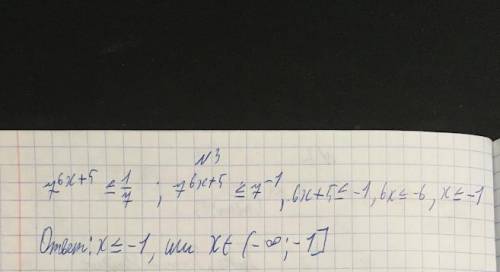 №3
7^{6x+5} ≤ 1/7 ; 7^{6x+5} ≤ 7^{-1}, 6x+5 ≤ -1, 6x ≤ -6, x ≤ -1
Ответ: x ≤ -1, или x ∈ (-∞; -1]